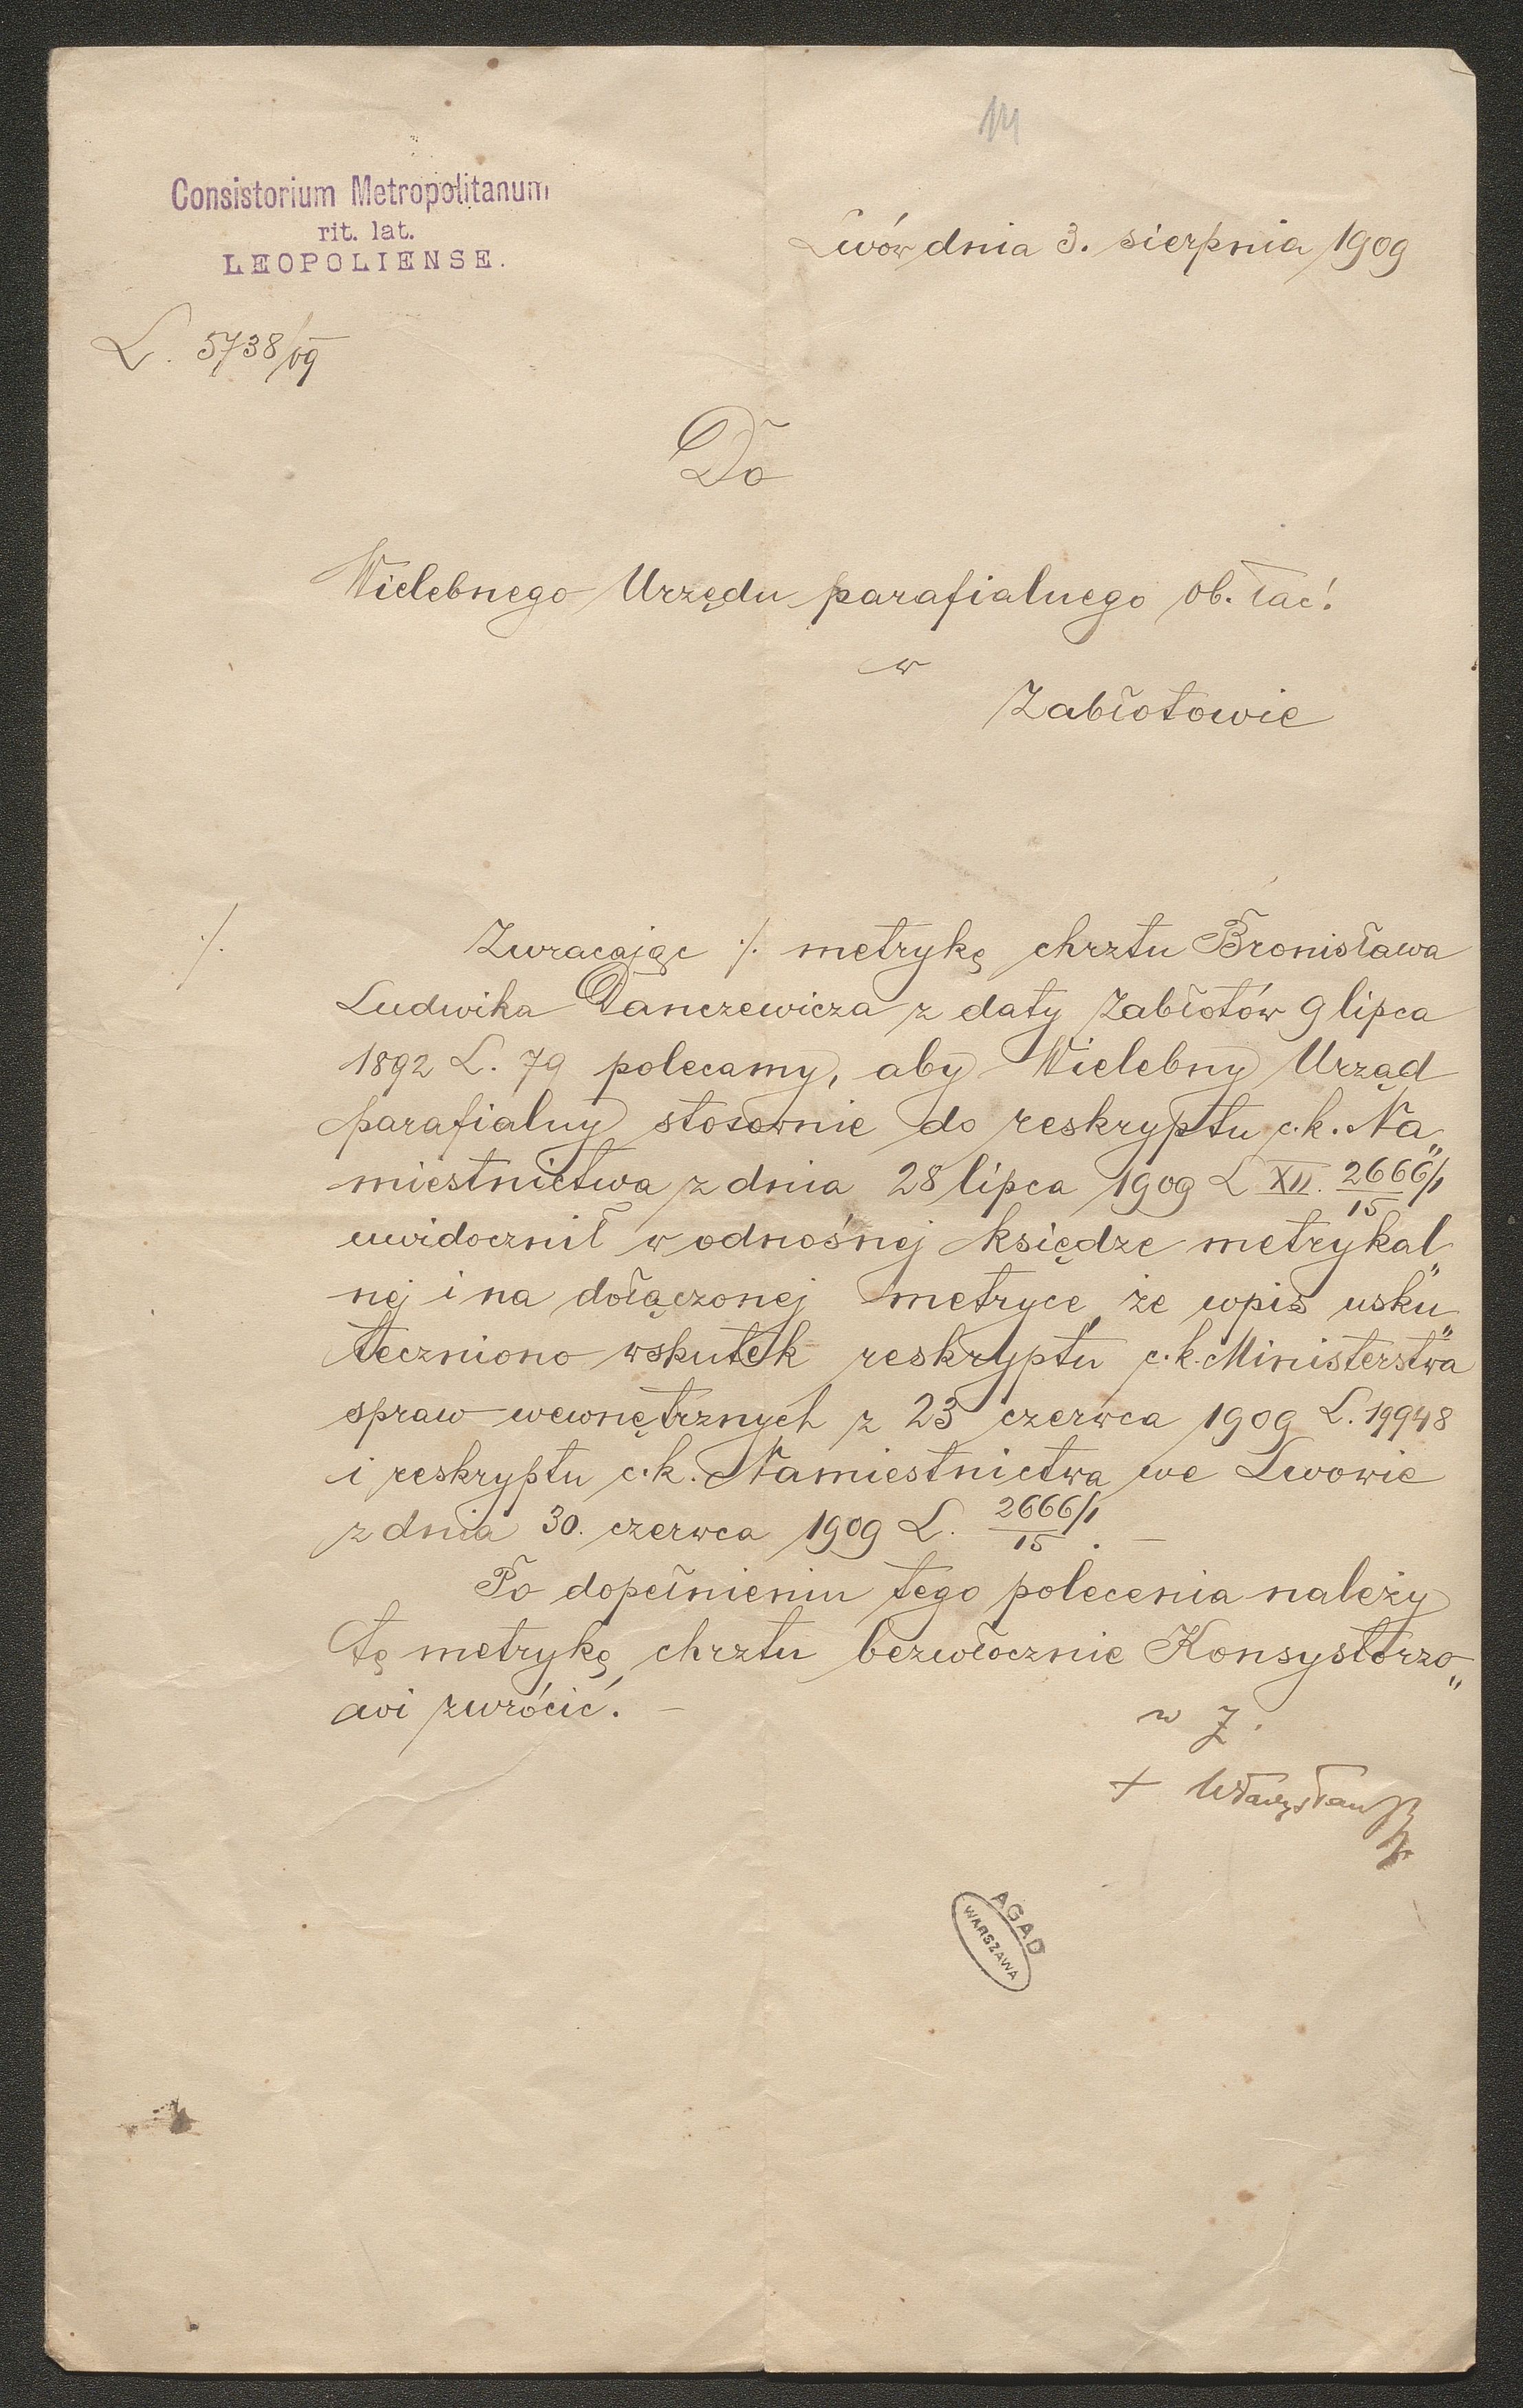 14
Consistorium Metropolitanum
rit. lat.
LEOPOLIENSE.
Lwów dnia 3. sierpnia 1909
L. 5738/09
Do
Wielebnego Urzędu parafialnego ob. łać.
w
Zabłotowie
./. Zwracając ./. metrykę chrztu Bronisława
Ludwika Danczewicza z daty Zabłotów 9 lipca
1892 L. 79 polecamy, aby Wielebny Urząd
parafialny stosownie do reskryptu c.k. Na„
miestnictwa z dnia 28 lipca 1909 L XII. 2666/1
15
uwidocznił w odnośnej księdze metrykal„
nej i na dołączonej metryce, że wpis usku„
teczniono wskutek reskryptu c.k. Ministerstwa
spraw wewnętrznych z 23 czerwca 1909 L. 19948
i reskryptu c.k. Namiestnictwa we Lwowie
z dnia 30. czerwca 1909 L. 2666/1
15 . —
Po dopełnieniu tego polecenia należy
tę metrykę chrztu bezwłocznie Konsystorzo„
wi zwrócić. —
w Z.
+ Władysław
AGAD
WARSZAWA